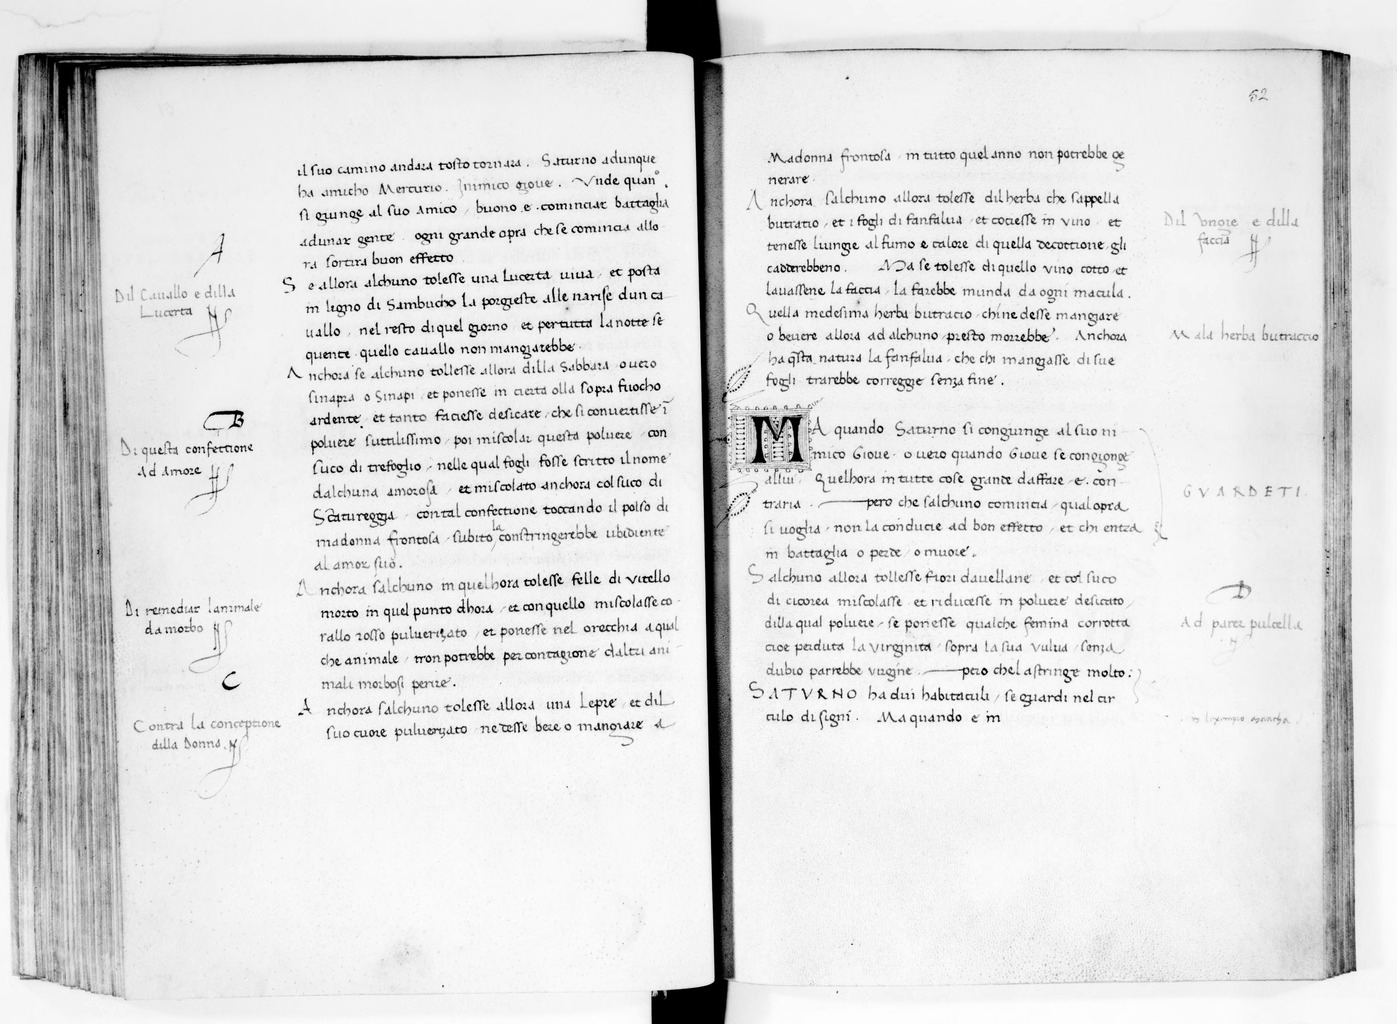 il suo camino andara tosto tornara. Saturno adunque
ha amicho Mercurio. Inimico giove. Vnde quan°.
si giunge al suo amico, buono e cominciar battaglia
adunar gente. ogni grande opra che se comincia allo-
ra sortira buon effetto.
A
Dil Cavallo e dilla
Lucerta
Se allora alchuno tolesse una Lucerta viva, et posta
in ligno di Sambucho la porgieste alle narise dun ca
vallo, nel resto di quel giorno et per tutta la notte se
quente quello cavallo non mangiarebbe.
Anchora se alchuno tollesse allora dilla Sabbara o vero
sinapra o Sinapi, et ponesse in cierta olla sopra fuocho
ardente, et tanto faciesse desicare, che si convertisse ī
B
Di questa confettione
ad amore
polvere suttilissimo, poi miscolar questa polvere con
suco di trefoglio, nelle qual fogli fosse scritto il nome
dalchuna amorosa, et miscolato anchora col suco di
Scatureggia, con tal confectione toccando il polso di
madonna frontosa, subito la constringerebbe ubidiente
al amor suo.
Di remediar lanimale
da morbo
Anchora salchuno in quelhora tolesse felle di vitello
morto in quel punto dhora, et con quello miscolasse co-
rallo rosso pulverizato, et ponesse nel orecchia a qual
che animale, non potrebbe per contagione daltri ani-
mali morbosi perire.
C
Contra la conceptione
dilla Donna.
Anchora salchuno tolesse allora una Lepre, et dil
suo cuore pulverizato, ne desse bere o mangiare a
52
Madonna frontosa, in tutto quel anno non potrebbe ge
nerare.
Anchora salchuno allora tolesse dil herba che sappella
butracio, et i fogli di fanfalua, et cociesse in vino, et
Dil Vngie e dilla
faccia
tenesse l'unge al fumo e calore di quella decottione, gli
cadderebbeno. Ma se tolesse di quello vino cotto et
lavassene la faccia, la farebbe munda da ogni macula.
Quella medesima herba butracio, chi ne desse mangiare
o bevere allora ad alchuno, presto morrebbe. Anchora
Mala herba butraccio
ha q̄sta natura la fanfalua, che chi mangiasse di sue
fogli trarebbe correggie senza fine.
MA quando Saturno si congiunge al suo ni
mico Giove, o vero quando Giove se congionge
allui. Quelhora in tutte cose grande daffare e con-
traria. pero che salchuno comincia qual opra
si voglia, non la conducie ad bon effetto, et chi entra
in battaglia o perde, o muore.
GVARDETI.
Salchuno allora tollesse fiori davellane, et col suco
di cicorea miscolasse et riducesse in polvere desicato,
dilla qual polvere, se ponesse qualche femina corrotta
D
Ad parer pulcella
cioe perduta la virginita, sopra la sua vulva, senza
dubio parrebbe virgine. pero chel astringe molto:
SATVRNO ha dui habitaculi, se guardi nel cir
culo di signi. Ma quando e in